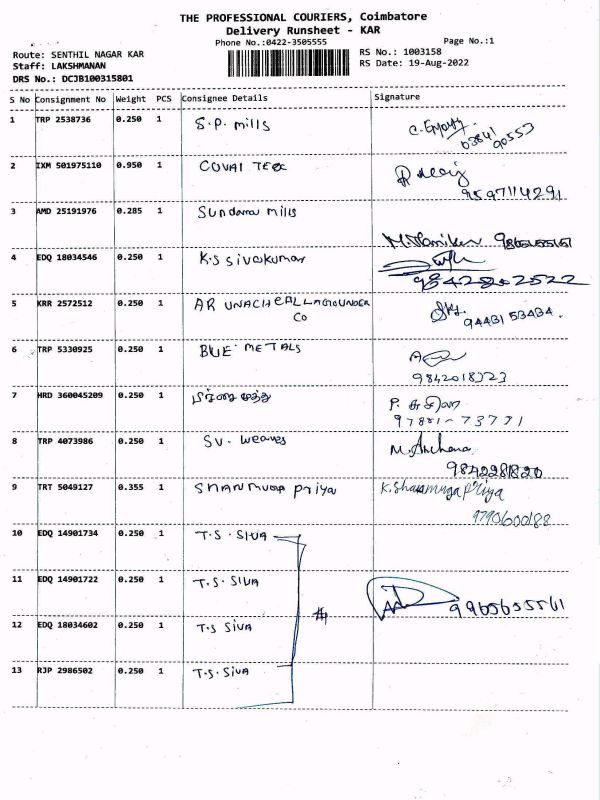 THE PROFESSIONAL COURIERS, Coimbatore
Delivery Runsheet - KAR
Phone No.:0422-3505555 Page No.:1
Route: SENTHIL NAGAR KAR RS No.: 1003158
Staff: LAKSHMANAN RS Date: 19-Aug-2022
DRS No.: DCJB100315801
S No Consignment No Weight PCS Consignee Details Signature
1 TRP 2538736 0.250 1 S.P. mills
90553
2 IXM 501975110 0.950 1 COVAI TEX
9597114291
3 AMD 25191976 0.285 1 Sundara mills
4 EDQ 18034546 0.250 1 K.S Sivakumar
5 KRR 2572512 0.250 1 AR UNACHALLAGOUNDER
CO
94431 53434.
6 TRP 5330925 0.250 1 BLUE METALS
9842018323
7 HRD 360045209 0.250 1
P. சுசிலா
97881-73771
8 TRP 4073986 0.250 1 SV. weaves M. Archana
9842281820
9 TRT 5049127 0.355 1 SHANMUGA Priya K. Shanmuga Priya
9790600188
10 EDQ 14901734 0.250 1 T.S. SIVA
11 EDQ 14901722 0.250 1 T.S. SIVA
9965655561
12 EDQ 18034602 0.250 1 T.S SIVA
13 RJP 2986502 0.250 1 T.S. SIVA